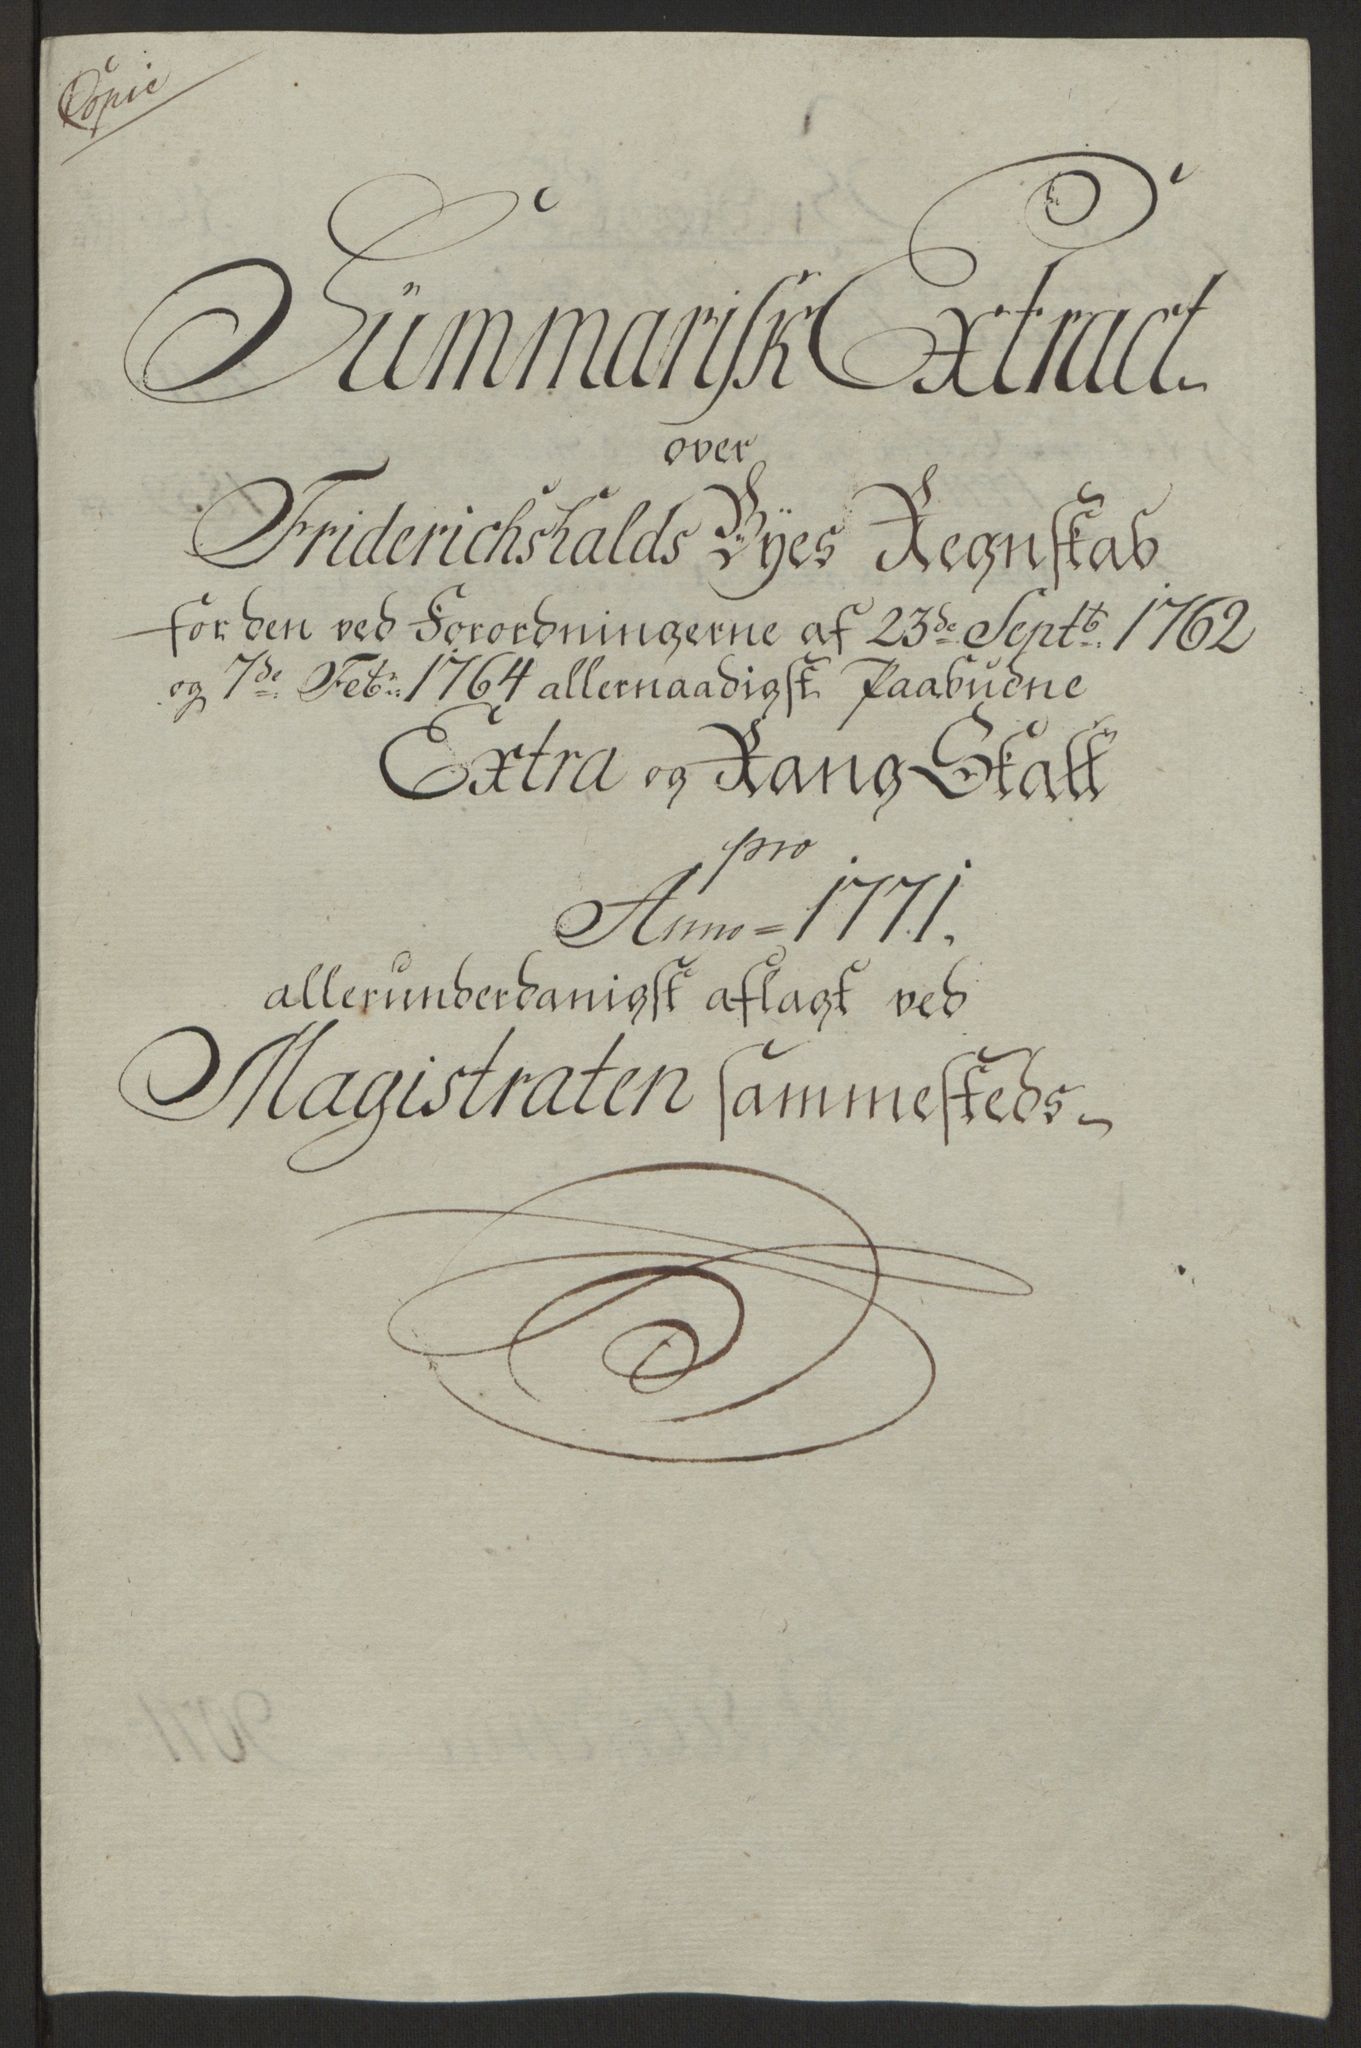 Copie
Summarisk Extract
over
Friderichshalds Byes Regnskab
for den ved Forordningerne af 23de Septb: 1762
og 7de Febr: 1764 allernaadigst Paabudne
Extra og Rang Skatt
pro
Anno = 1771.
allerunderdanigst aflagt ved
Magistraten sammesteds